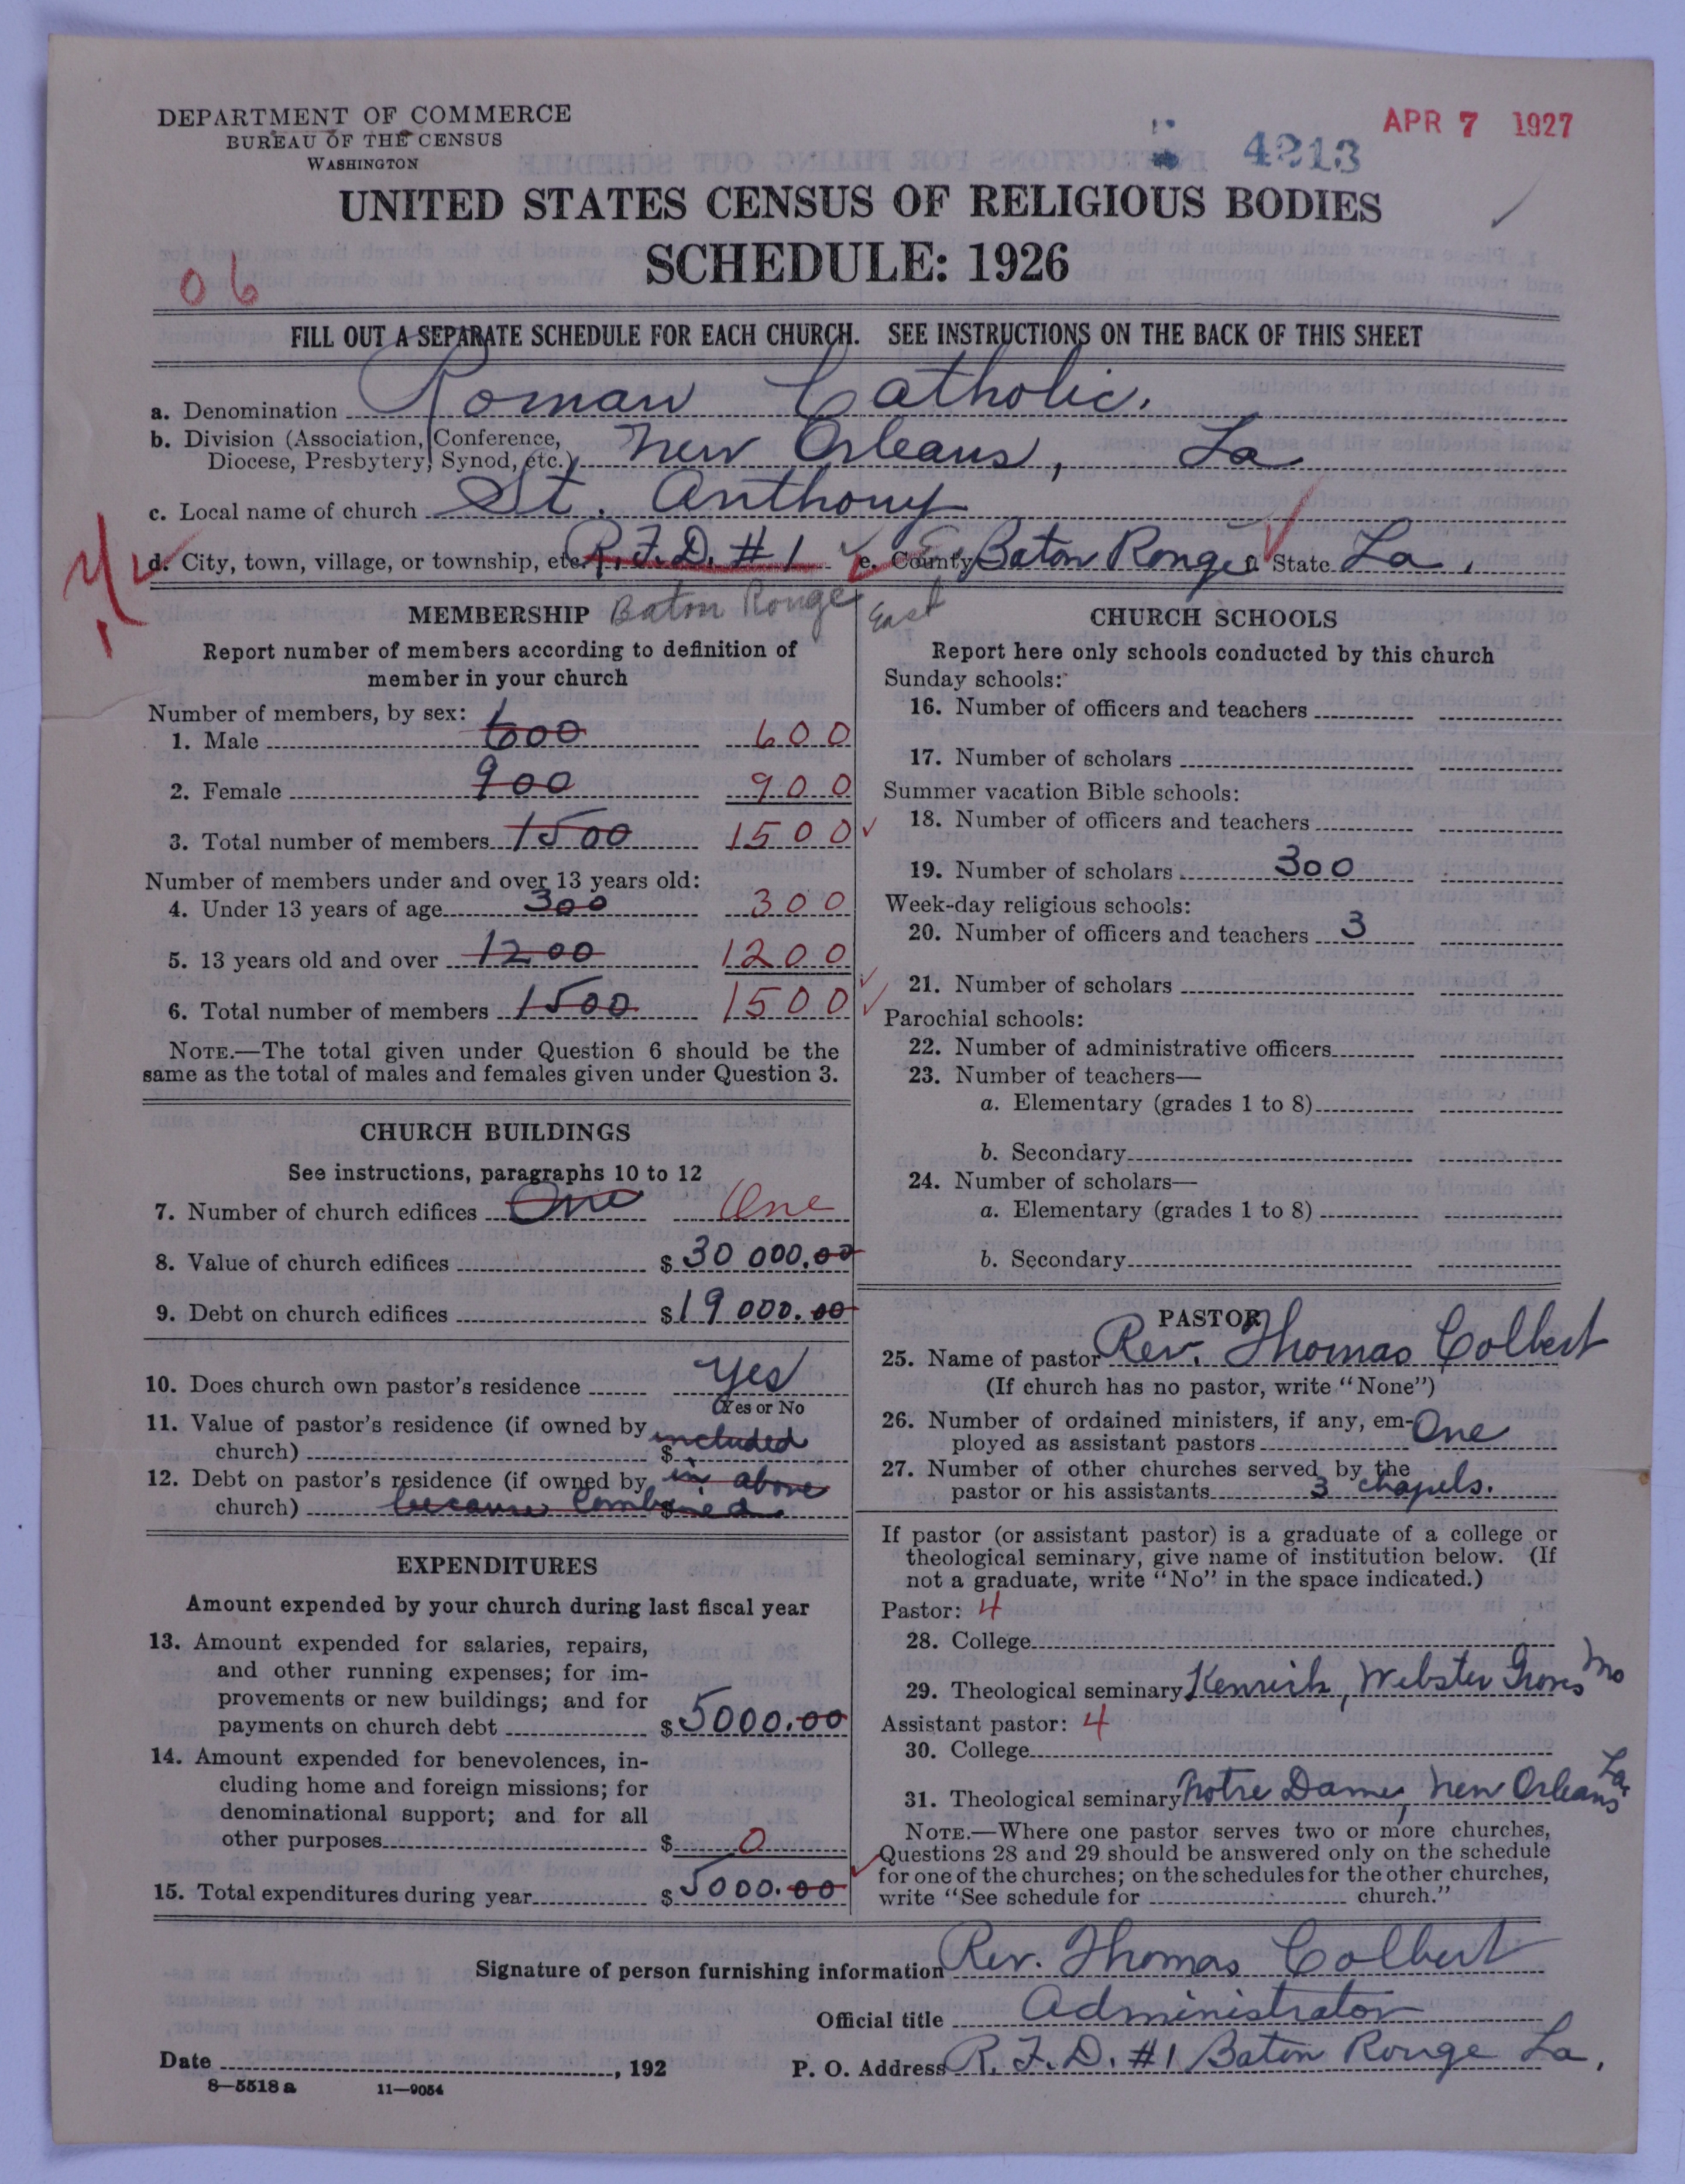 DEPARTMENT OF COMMERCE
BUREAU OF THE CENSUS
WASHINGTON
4213
APR 7 1927
UNITED STATES CENSUS OF RELIGIOUS BODIES
SCHEDULE: 1926
06
FILL OUT A SEPARATE SCHEDULE FOR EACH CHURCH. SEE INSTRUCTIONS ON THE BACK OF THIS SHEET
a. Denomination Roman Catholic.
b. Division (Association, Conference,
Diocese, Presbytery, Synod, etc.) New Orleans, La
c. Local name of church St. Anthony
d. City, town, village, or township, etc. R.F.D. #1 e. County E. Baton Rouge f. State La.
Baton Rouge East
MEMBERSHIP
Report number of members according to definition of
member in your church
Number of members, by sex:
1. Male 600 600
2. Female 900 900
3. Total number of members 1500 1500
Number of members under and over 13 years old:
4. Under 13 years of age 300 300
5. 13 years old and over 1200 1200
6. Total number of members 1500 1500
NOTE.—The total given under Question 6 should be the
same as the total of males and females given under Question 3.
CHURCH BUILDINGS
See instructions, paragraphs 10 to 12
7. Number of church edifices One One
8. Value of church edifices $ 30 000.00
9. Debt on church edifices $ 19 000.00
10. Does church own pastor's residence Yes
(Yes or No
11. Value of pastor's residence (if owned by included
church) $
12. Debt on pastor's residence (if owned by in above
church) because combined. $
EXPENDITURES
Amount expended by your church during last fiscal year
13. Amount expended for salaries, repairs,
and other running expenses; for im-
provements or new buildings; and for
payments on church debt $ 5000.00
14. Amount expended for benevolences, in-
cluding home and foreign missions; for
denominational support; and for all
other purposes $ 0
15. Total expenditures during year $ 5000.00
CHURCH SCHOOLS
Report here only schools conducted by this church
Sunday schools:
16. Number of officers and teachers
17. Number of scholars
Summer vacation Bible schools:
18. Number of officers and teachers
19. Number of scholars 300
Week-day religious schools:
20. Number of officers and teachers 3
21. Number of scholars
Parochial schools:
22. Number of administrative officers
23. Number of teachers—
a. Elementary (grades 1 to 8)
b. Secondary
24. Number of scholars—
a. Elementary (grades 1 to 8)
b. Secondary
PASTOR
25. Name of pastor Rev. Thomas Colbert
(If church has no pastor, write "None")
26. Number of ordained ministers, if any, em-
ployed as assistant pastors One
27. Number of other churches served by the
pastor or his assistants 3 chapels.
If pastor (or assistant pastor) is a graduate of a college or
theological seminary, give name of institution below. (If
not a graduate, write "No" in the space indicated.)
Pastor: 4
28. College
29. Theological seminary Kenrick, Webster Groves Mo
Assistant pastor: 4
30. College
31. Theological seminary Notre Dame, New Orleans La
NOTE.—Where one pastor serves two or more churches,
Questions 28 and 29 should be answered only on the schedule
for one of the churches; on the schedules for the other churches,
write "See schedule for church."
Signature of person furnishing information Rev. Thomas Colbert
Official title Administrator
Date , 192 P. O. Address R.F.D. #1 Baton Rouge La.
8—5518 a 11—9054